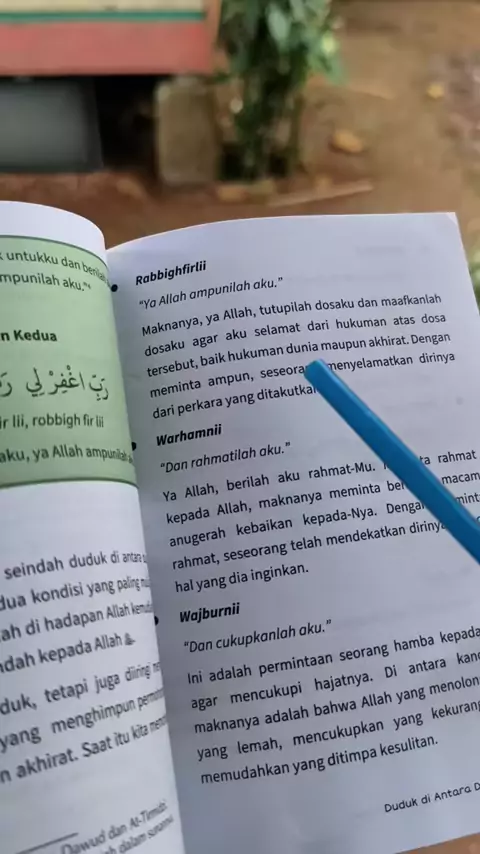 untukku dan
mpunilah aku."
n Kedua
رَبِّ اغْفِرْ لِي رَ
ir lii, robbigh fir lii
aku, ya Allah ampunilah
seindah duduk di antara
dua kondisi yang paling
ah di hadapan Allah
ndah kepada Allah
duk, tetapi juga diiringi
yang menghimpun
n akhirat. Saat itu kita
Dawud dan At-Tirmidzi,
dalam
Rabbighfirlii
"Ya Allah ampunilah aku."
Maknanya, ya Allah, tutupilah dosaku dan maafkanlah
dosaku agar aku selamat dari hukuman atas dosa
tersebut, baik hukuman dunia maupun akhirat. Dengan
meminta ampun, menyelamatkan dirinya
dari perkara yang
Warhamnii
"Dan rahmatilah aku."
Ya Allah, berilah aku rahmat-Mu. rahmat
kepada Allah, maknanya meminta macam
anugerah kebaikan kepada-Nya.
rahmat, seseorang telah mendekatkan
hal yang dia inginkan.
Wajburnii
"Dan cukupkanlah aku."
Ini adalah permintaan seorang hamba kepada
agar mencukupi hajatnya. Di antara
maknanya adalah bahwa Allah yang
yang lemah, mencukupkan yang
memudahkan yang ditimpa kesulitan.
Duduk di Antara